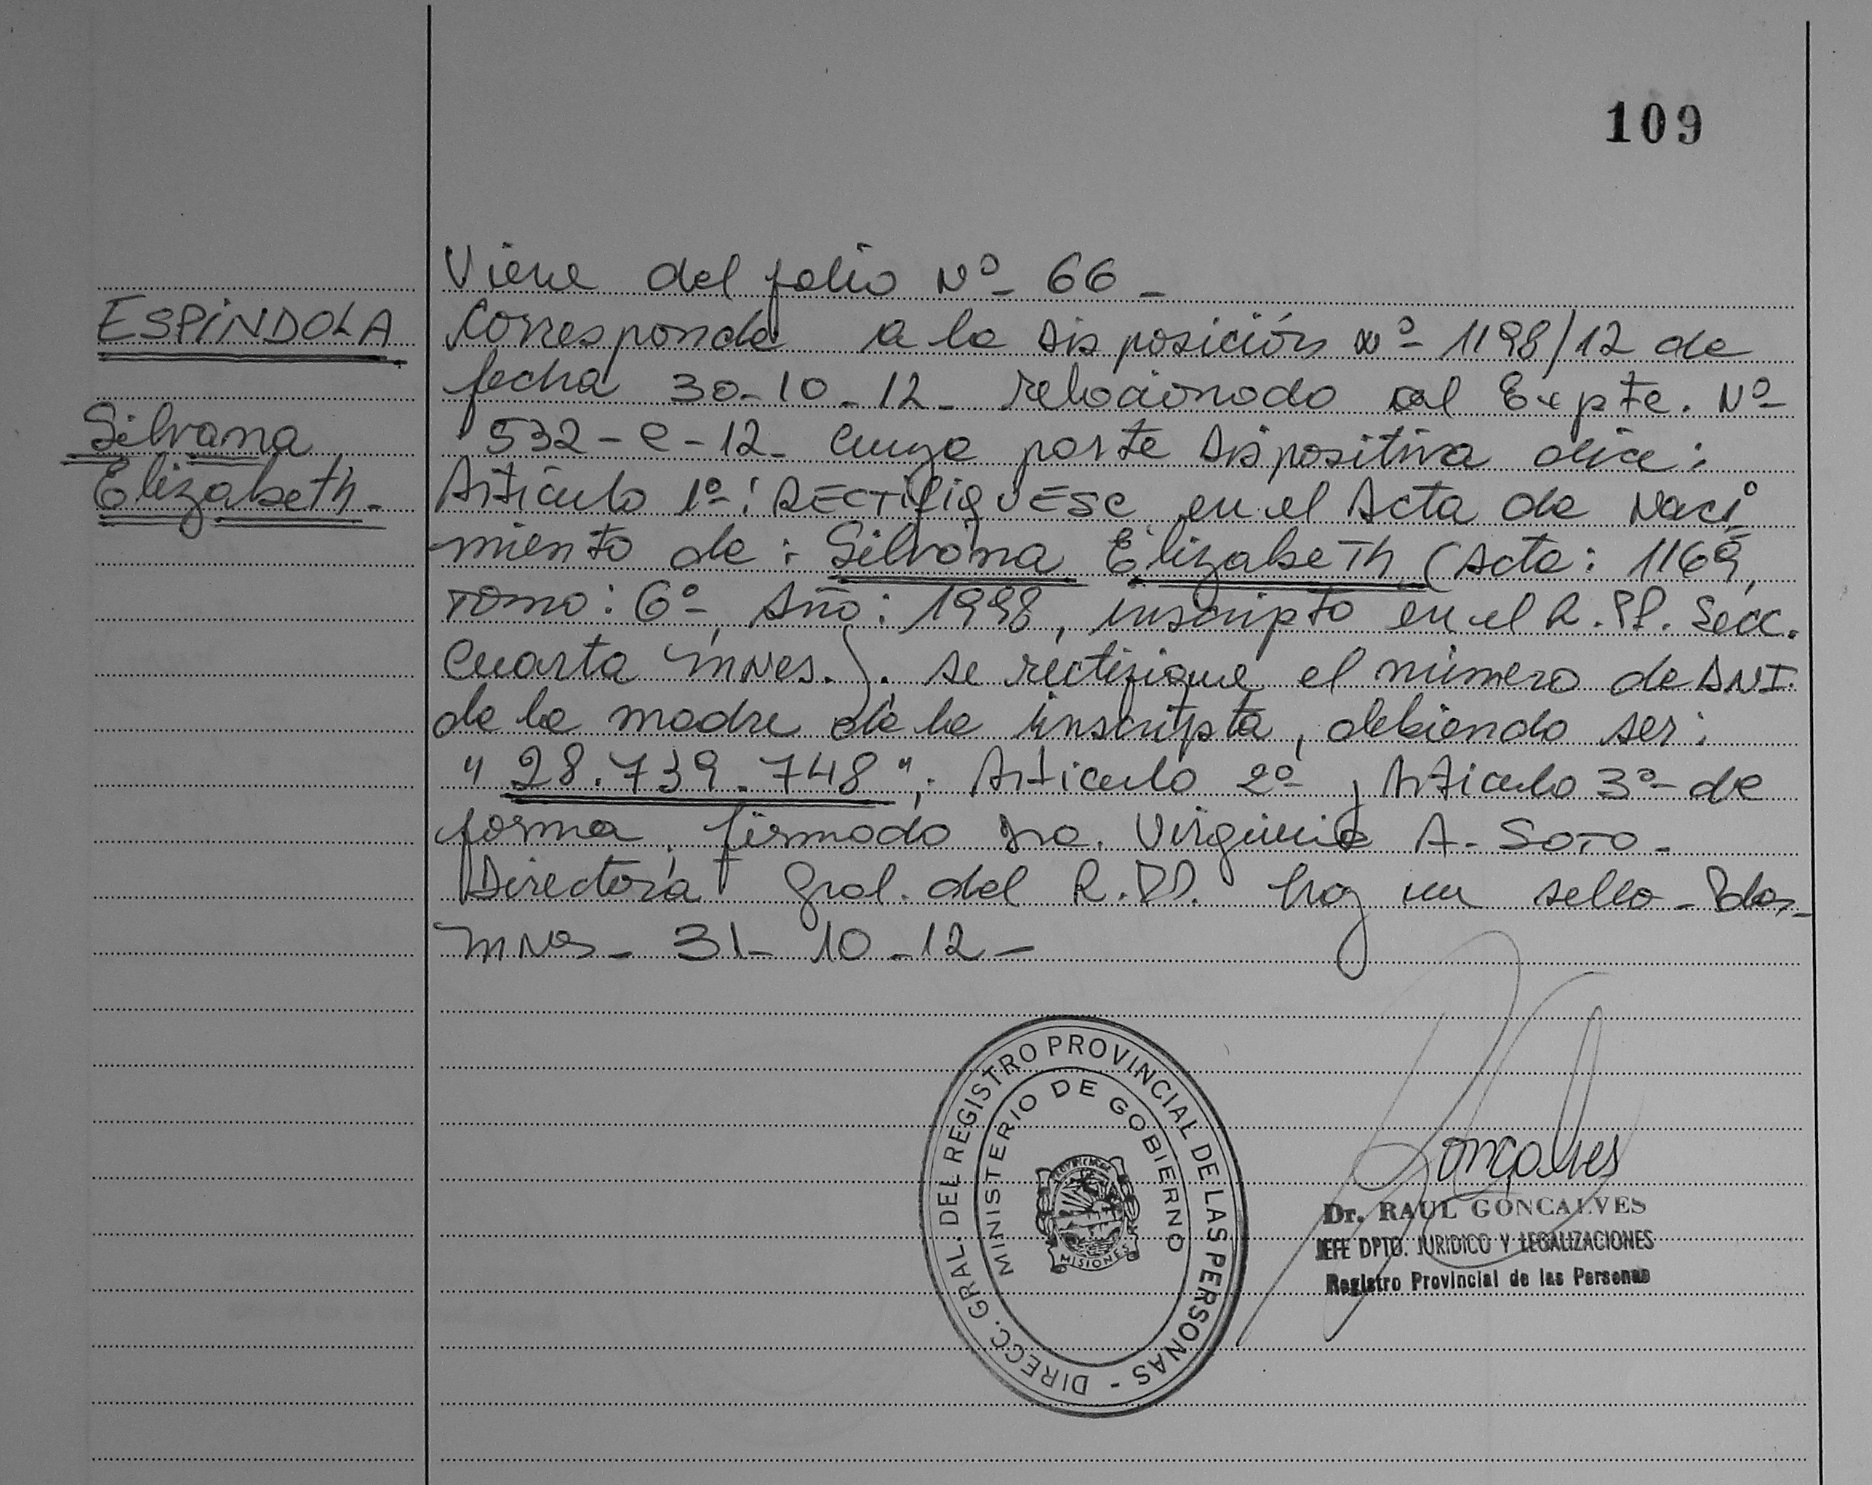 109
ESPINDOLA
Silvana
Elizabeth.-
Viene del folio Nº- 66 -
Corresponde a la Disposición nº- 1198/12 de
fecha 30-10-12- relacionado al Expte. Nº-
532-e-12- cuya parte Dispositiva dice:
Artículo 1º-: RECTIFIQUESE en el Acta de Naci-
miento de: Silvana Elizabeth (Acta: 1169,
Tomo: 6º-, Año: 1998, inscripto en el R.PP. Secc.
Cuarta Mnes.). se rectifique el número de DNI.
de la madre de la inscripta, debiendo ser:
"28.739.748"; Artículo 2º y Artículo 3º- de
forma, firmado Dra. Virginia A. Soto-
Directora Gral. del R.PP. hay un sello- Pdas-
Mnes- 31-10-12-
DIRECC. GRAL. DEL REGISTRO PROVINCIAL DE LAS PERSONAS -
MINISTERIO DE GOBIERNO
PROVINCIA DE
MISIONES
Gonçalves
Dr. RAUL GONCALVES
JEFE DPTO. JURIDICO Y LEGALIZACIONES
Registro Provincial de las Personas